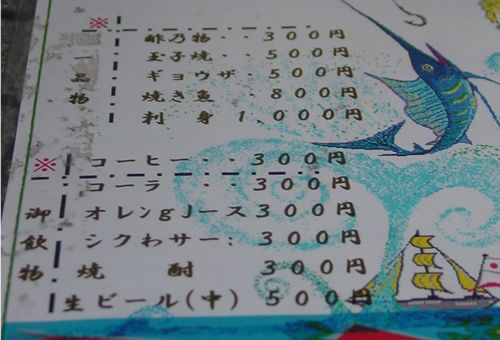 ※
一品物
酢乃物・・３００円
玉子焼・・５００円
ギョウザ・５００円
焼き魚　８００円
刺　身１,０００円
※
御飲物
コーヒー・・３００円
コーラ・・３００円
オレンｇＪース３００円
シクわサー：３００円
焼　酎　３００円
生ビール（中）５００円